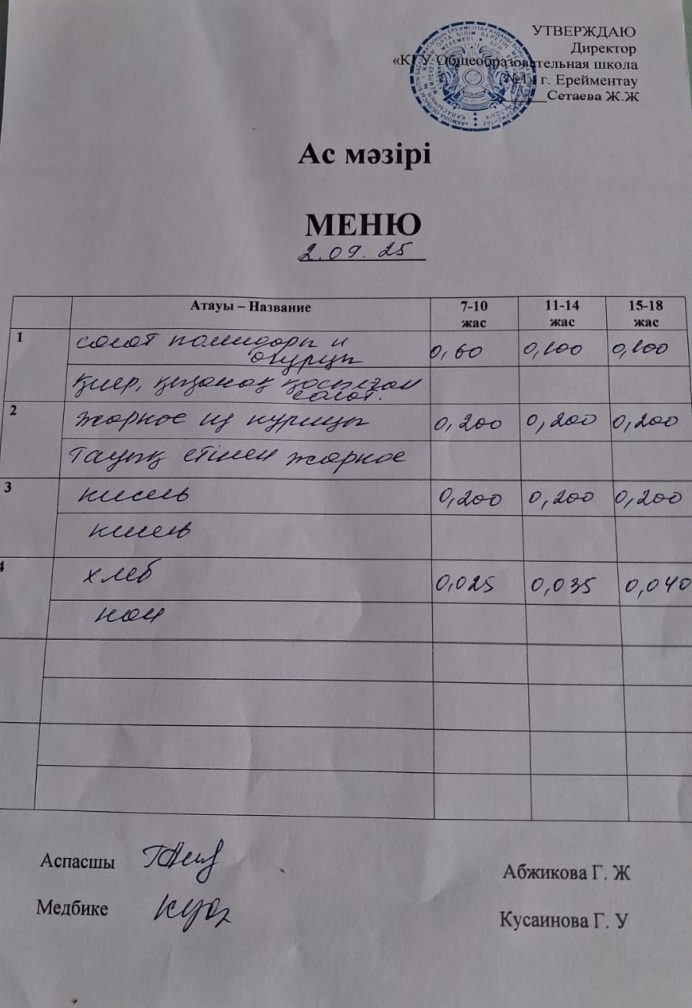 УТВЕРЖДАЮ
Директор
«КГУ Общеобразовательная школа
№1 г. Ерейментау
Сетаева Ж.Ж
Ас мәзірі
МЕНЮ
2.09.25
Атауы – Название 7-10 жас 11-14 жас 15-18 жас
1 салат помидоры и огурцы 0,60 0,100 0,100
Қияр, қызанақ қосылған салат.
2 жаркое из курицы 0,200 0,200 0,200
Тауық етімен жаркое
3 кисель 0,200 0,200 0,200
кисель
4 хлеб 0,025 0,035 0,040
нан
Аспасшы Абжикова Г. Ж
Медбике Кусаинова Г. У